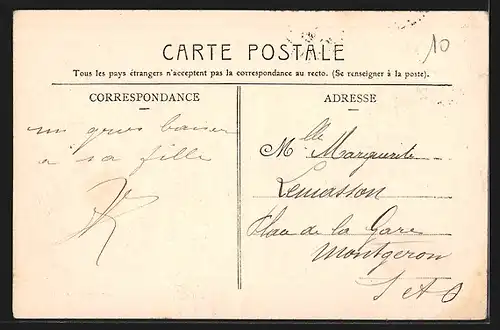 10
CARTE POSTALE
Tous les pays étrangers n'acceptent pas la correspondance au recto. (Se renseigner à la poste).
CORRESPONDANCE
un gros baiser
a sa fille
ADRESSE
Mlle Marguerite
Lemasson
Place de la Gare
Montgeron
S et O